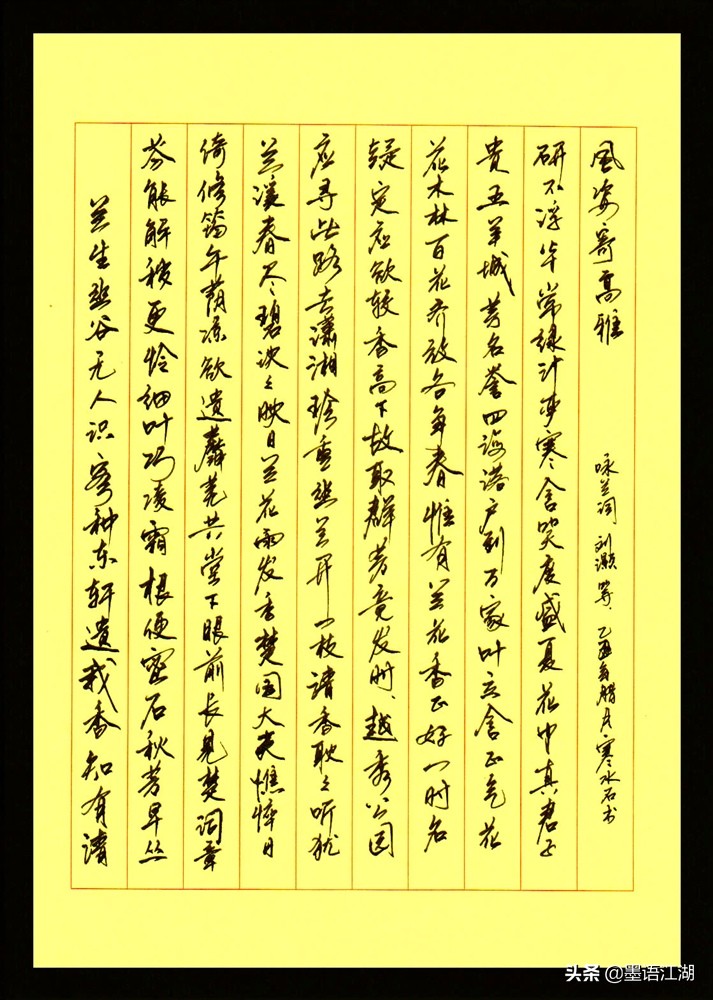 兰生幽谷无人识客种东轩遗我香知有清
芬能解秽更怜细叶巧凌霜根便密石秋芳早丛
倚修筠午荫凉欲遗蘼芜共堂下眼前长见楚词章
兰溪春尽碧泱々映日兰花雨发香楚国大夫憔悴日
应寻此路去潇湘珍重幽兰开一枝清香耿々听犹
疑定应欲较香高下故取群芳竞发时、越秀公园
花木林百花齐放各争春惟有兰花香正好一时名
贵五羊城芳名誉四海落户到万家叶立含正气花
研不浮华常绿斗严寒含笑度盛夏花中真君子
風姿寄高雅
咏兰词 刘灏等、乙酉年腊月、寒水石书
头条 @墨语江湖